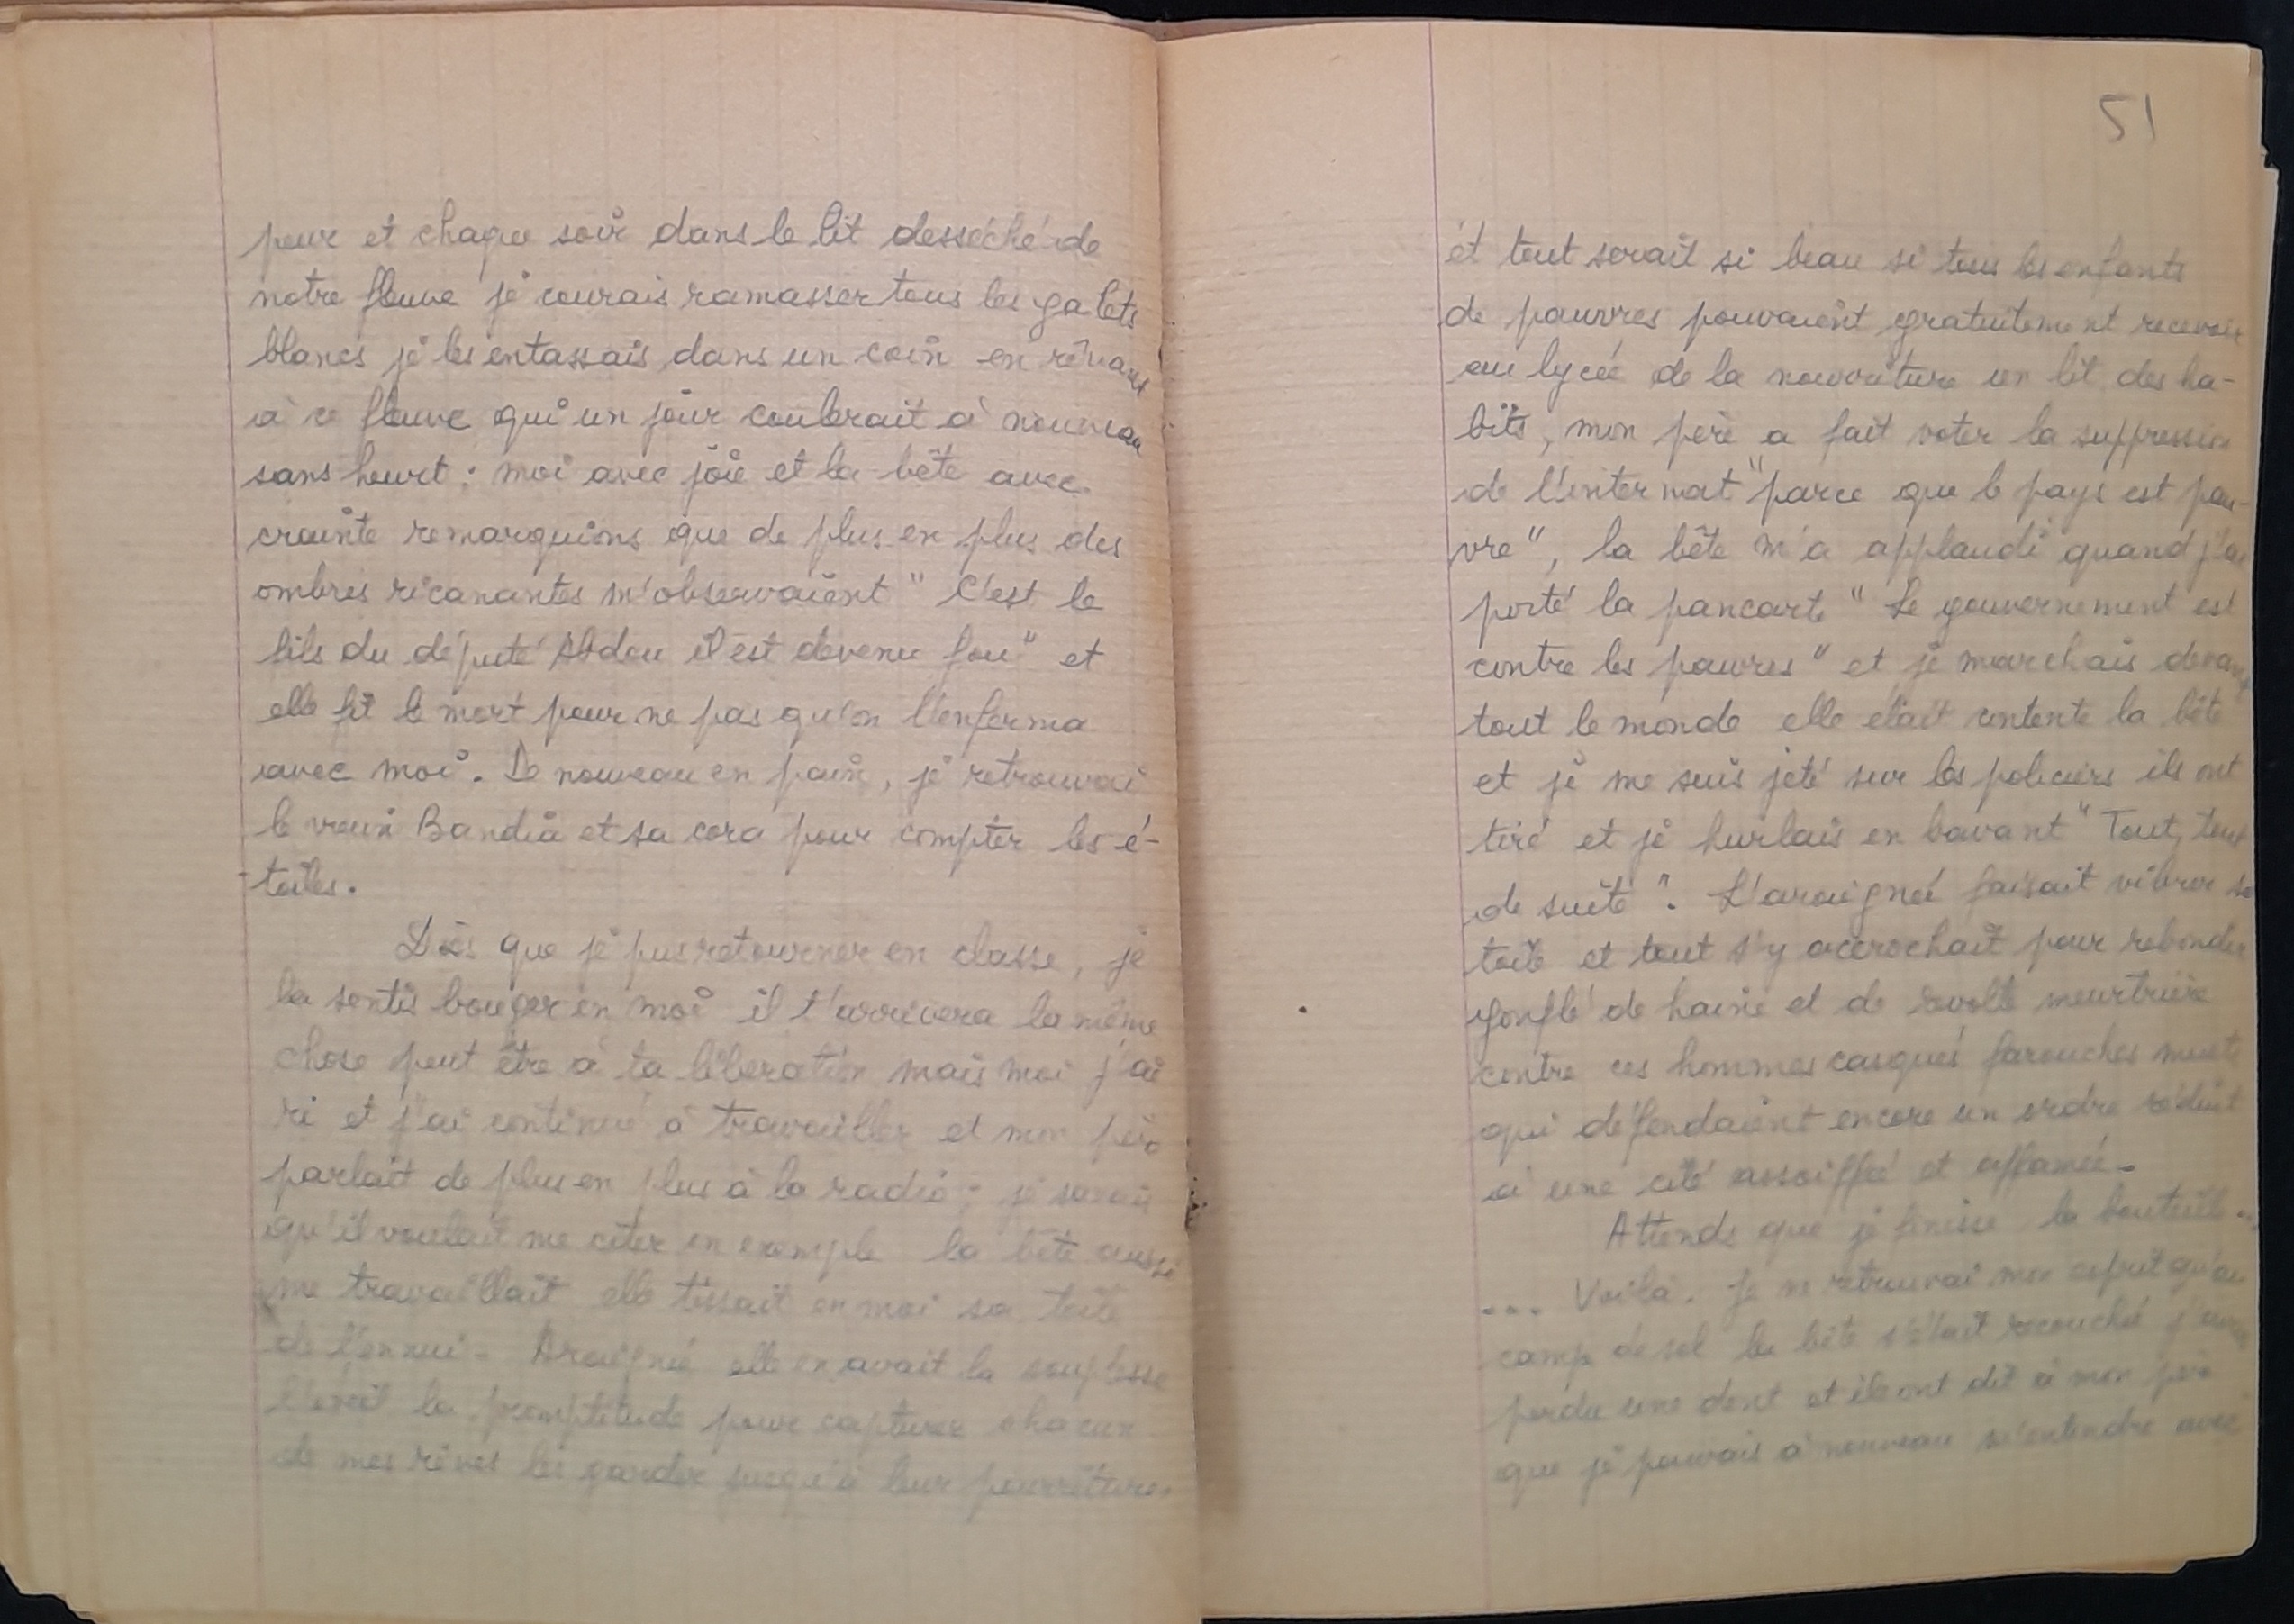 peur et chaque soir dans le lit desséché de
notre fleuve je courais ramasser tous les galets
blancs je les entassais dans un coin en rêvant
à ce fleuve qui un jour coulerait à nouveau
sans heurt : moi avec joie et la bête avec
crainte remarquions que de plus en plus des
ombres ricanantes m'observaient " C'est le
fils du député Abdou il est devenu fou " et
elle fit le mort pour ne pas qu'on l'enferma
avec moi. De nouveau en paix, je retrouvai
le vieux Bandia et sa cora pour compter les é-
toiles.
Dès que je pus retourner en classe, je
la sentis bouger en moi il t'arrivera la même
chose peut être à ta libération mais moi j'ai
ri et j'ai continué à travailler et mon père
parlait de plus en plus à la radio ; je savais
qu'il voulait me citer en exemple la bête aussi
me travaillait elle tissait en moi sa toile
de l'ennui - Araignée elle en avait la souplesse
la promptitude pour capturer chacun
de mes rêves les garder jusqu'à leur pourriture.
51
et tout serait si beau si tous les enfants
de pauvres pouvaient gratuitement recevoir
au lycée de la nourriture un lit des ha-
bits, mon père a fait voter la suppression
de l'internat " parce que le pays est pau-
vre ", la bête m'a applaudi quand j'ai
porté la pancarte " Le gouvernement est
contre les pauvres " et je marchais devant
tout le monde elle était contente la bête
et je me suis jeté sur les policiers ils ont
tiré et je hurlais en bavant " Tout, tout
de suite ". L'araignée faisait vibrer sa
toile et tout s'y accrochait pour rebondir
gonflé de haine et de révolte meurtrière
contre ces hommes casqués farouches muets
qui défendaient encore un ordre réduit
à une cité assoiffée et affamée.
Attends que je finisse la bouteille ...
... Voilà. Je ne retrouvai mon esprit qu'au
camp de sel la bête s'était recouchée j'avais
perdu une dent et ils ont dit à mon père
que je pouvais à nouveau m'entendre avec